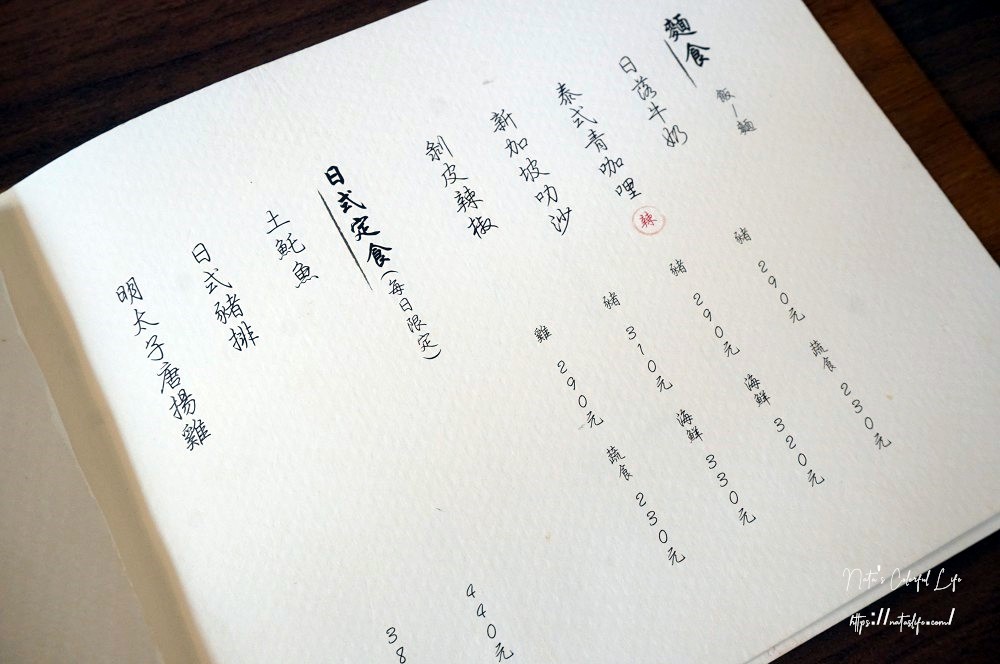 麵食 飯/麵
日落牛奶 豬 290元 蔬食 230元
泰式青咖哩 辣 豬 290元 海鮮 320元
新加坡叻沙 豬 310元 海鮮 330元
剝皮辣椒 雞 290元 蔬食 230元
日式定食(每日限定)
土魠魚 440元
日式豬排 38
明太子唐揚雞
Nata's Colorful Life
https://nataslife.com/